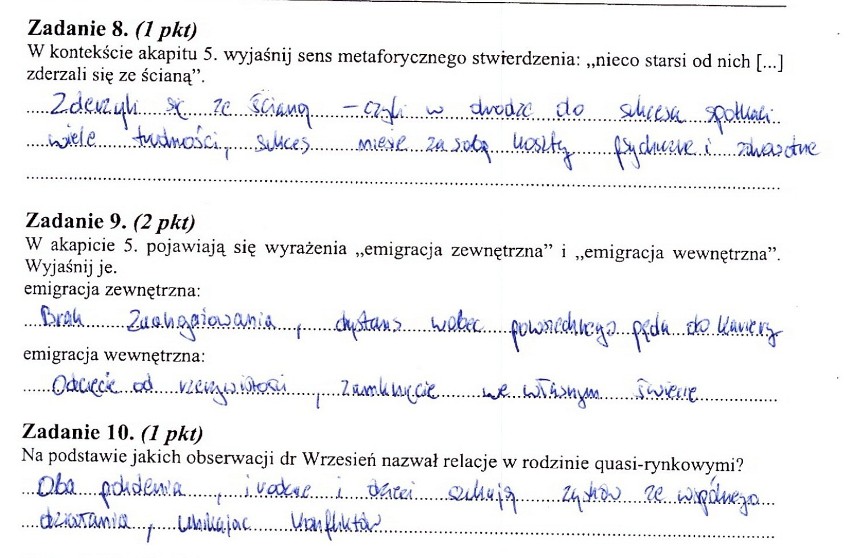 Zadanie 8. (1 pkt)
W kontekście akapitu 5. wyjaśnij sens metaforycznego stwierdzenia: „nieco starsi od nich [...]
zderzali się ze ścianą”.
Zderzyli się ze ścianą – czyli w drodze do sukcesu spotkali
wiele trudności, sukces niesie za sobą koszty psychiczne i zdrowotne
Zadanie 9. (2 pkt)
W akapicie 5. pojawiają się wyrażenia „emigracja zewnętrzna” i „emigracja wewnętrzna”.
Wyjaśnij je.
emigracja zewnętrzna:
Brak zaangażowania, dystans wobec powszechnego pędu do kariery
emigracja wewnętrzna:
Odcięcie od rzeczywistości, zamknięcie we własnym świecie
Zadanie 10. (1 pkt)
Na podstawie jakich obserwacji dr Wrzesień nazwał relacje w rodzinie quasi-rynkowymi?
Oba pokolenia, i rodzice i dzieci szukają zysków ze wspólnego
działania, unikając konfliktów